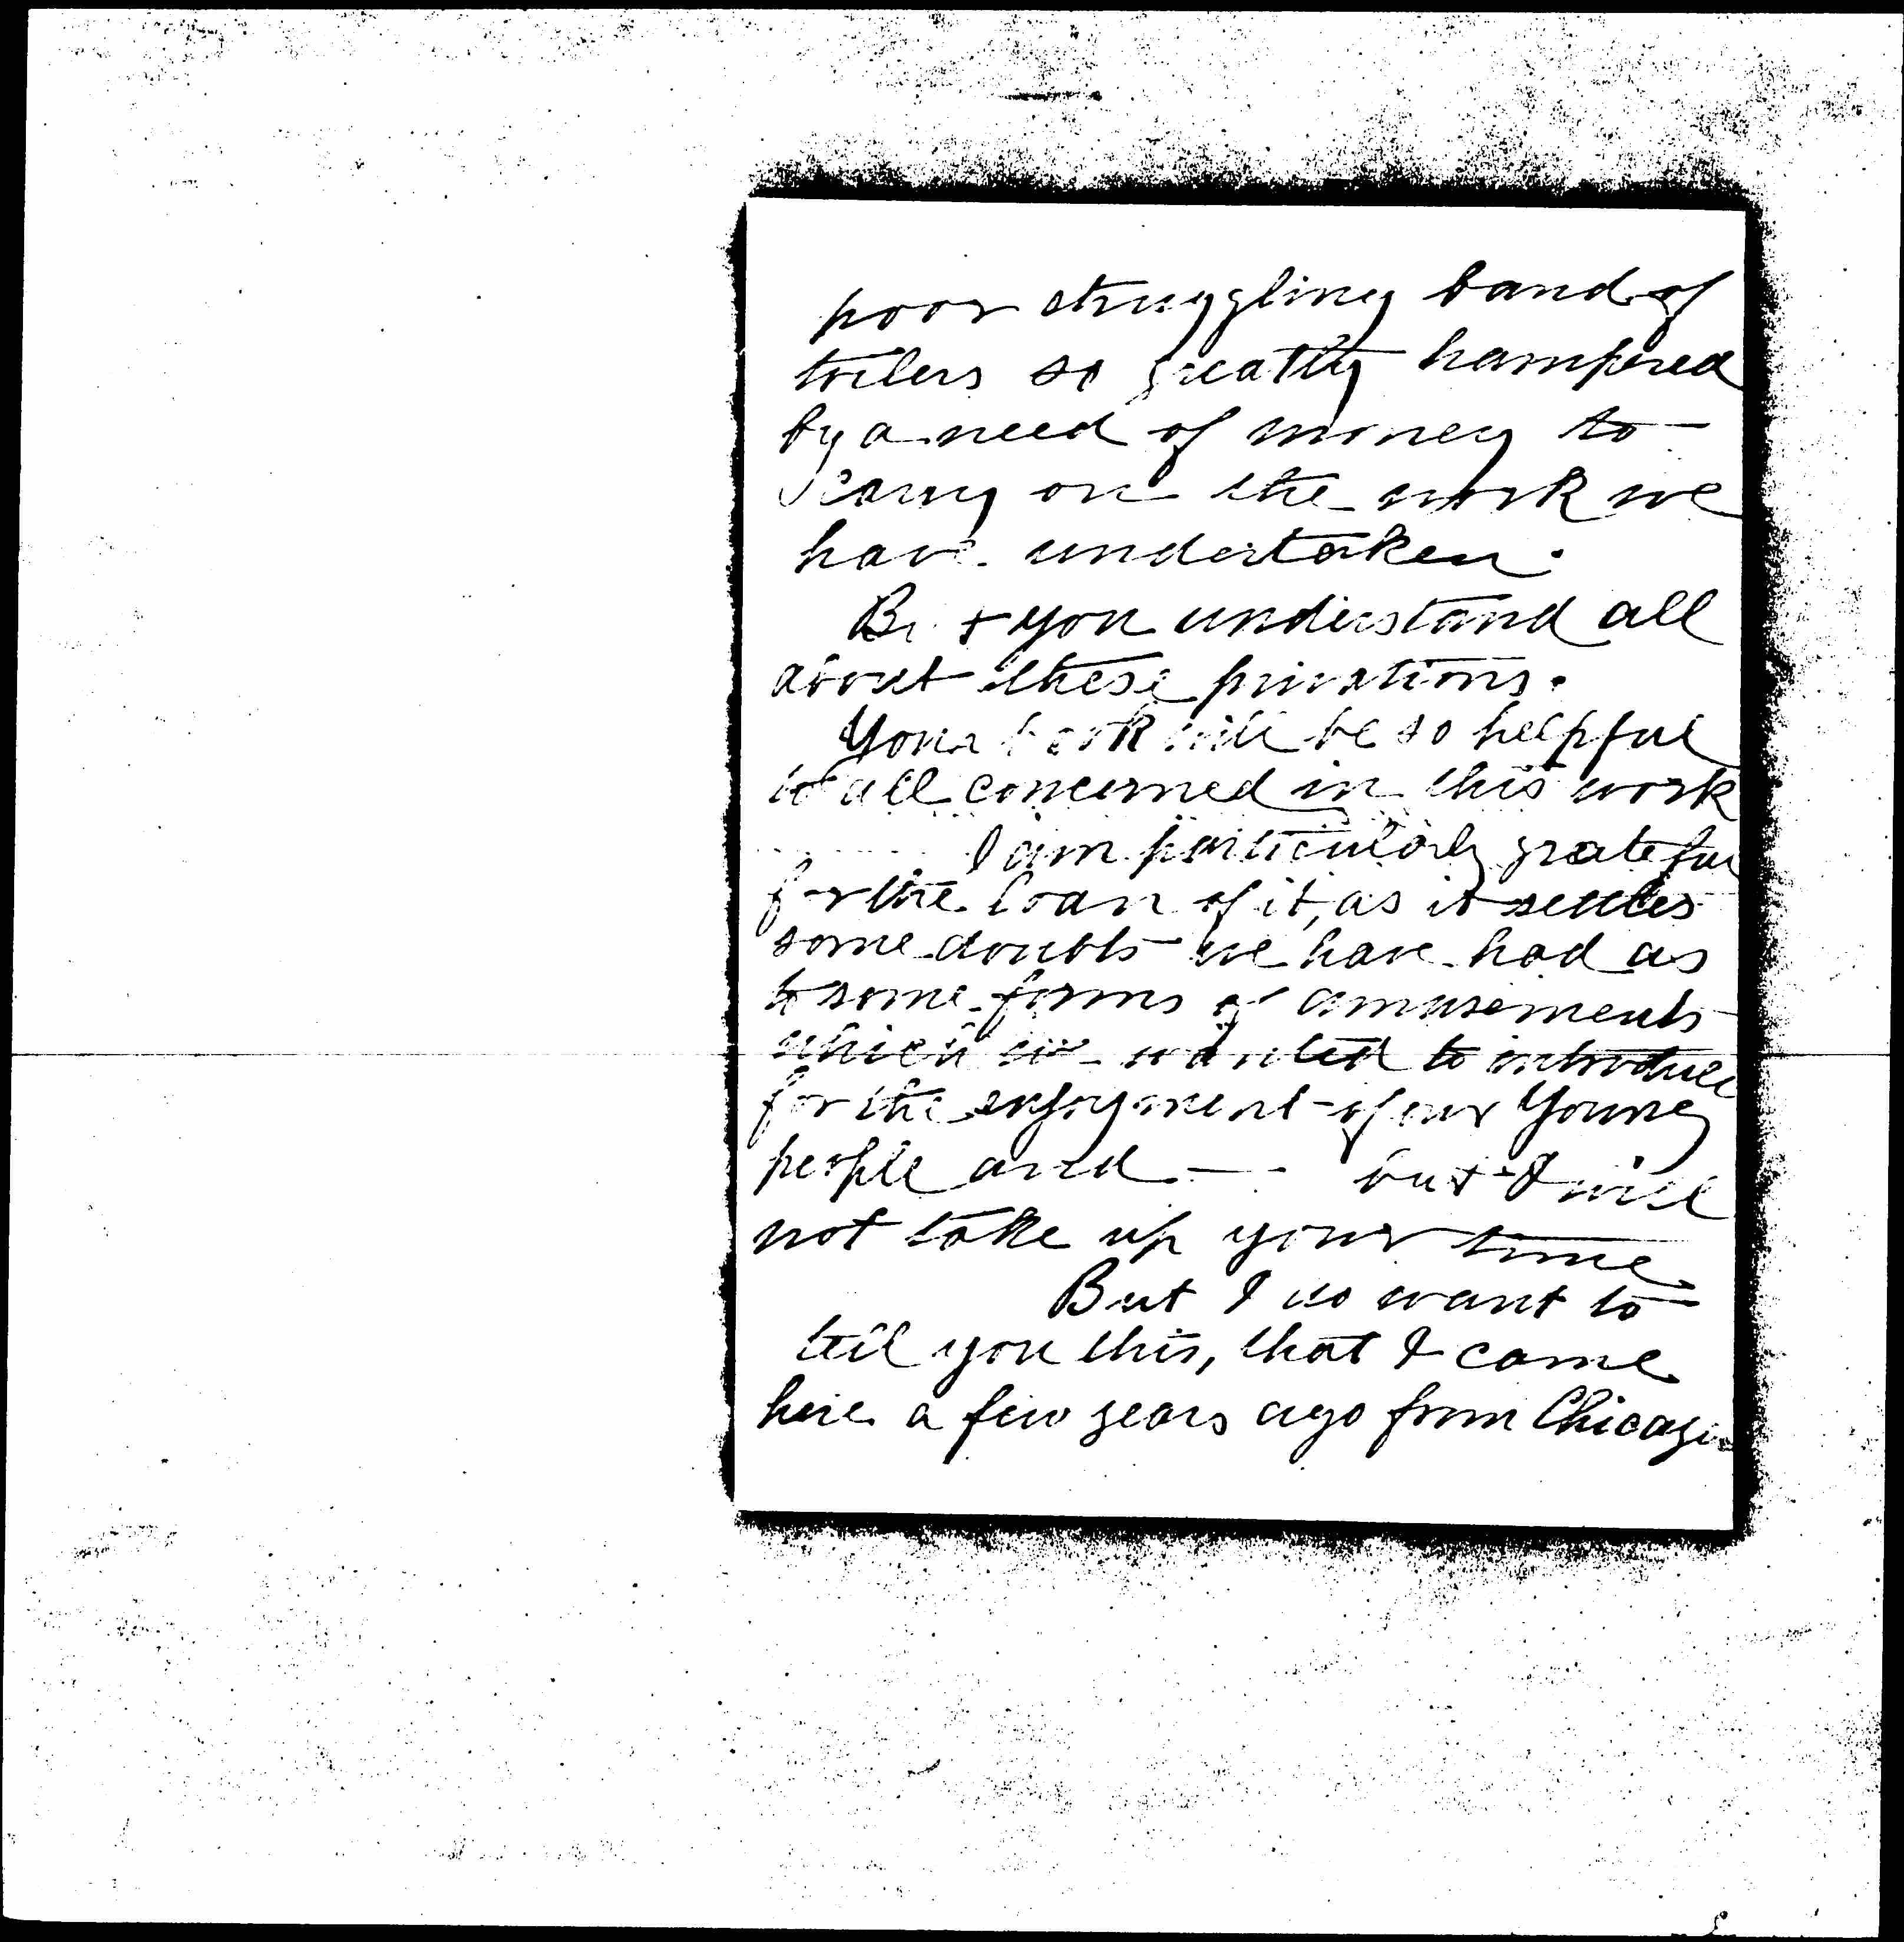 poor struggling band of
toilers so greatly hampered
by a need of money to
carry on the work we
have undertaken.
But you understand all
about these privations.
Your book will be so helpful
to all concerned in this work
I am particularly grateful
for the loan of it, as it settles
some doubts we have had as
to some forms of amusements
which we wanted to introduce
for the enjoyment of our Young
people and — but I will
not take up your time
But I do want to
tell you this, that I came
here a few years ago from Chicago